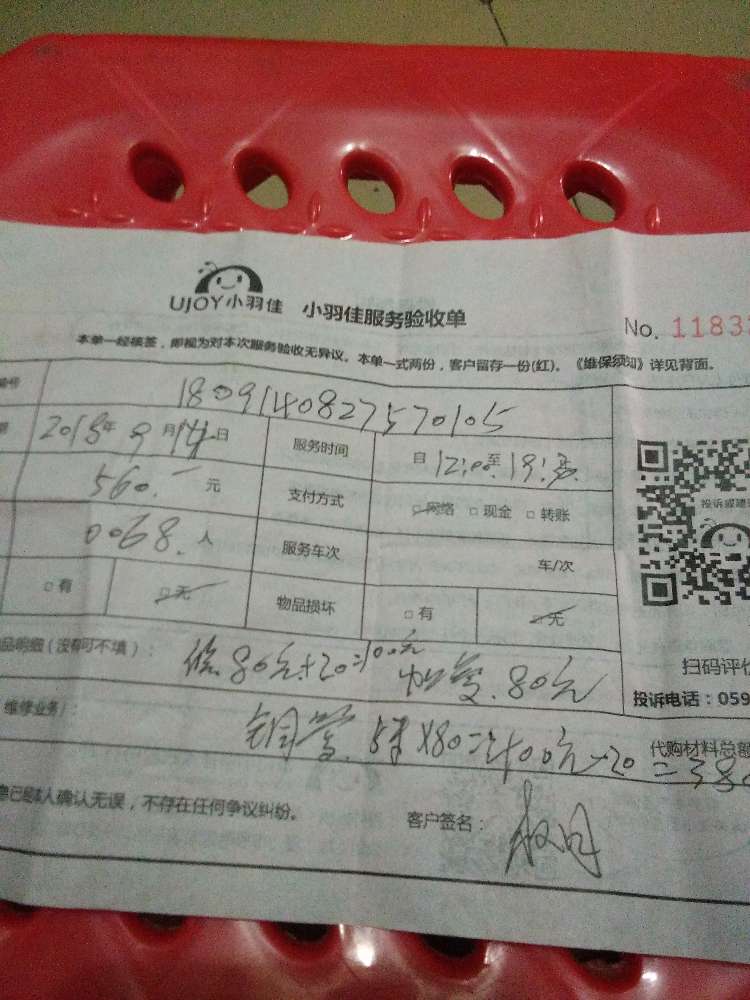 UJOY小羽佳 小羽佳服务验收单
No. 1183
本单一经核签，即视为对本次服务验收无异议。本单一式两份，客户留存一份(红)。《维保须知》详见背面。
编号 1809140827570105
2018年9月14日 服务时间 自12:00至19:
560.一元 支付方式 网络 现金 转账
投诉或建
0068.人 服务车次 车/次
有 无 物品损坏 有 无
品明细（没有可不填）： 80元+20=100元 80元
扫码评价
投诉电话：059
维修业务）： 铜管.5米X80=400元-20=380
代购材料总额
人确认无误，不存在任何争议纠纷。 客户签名：